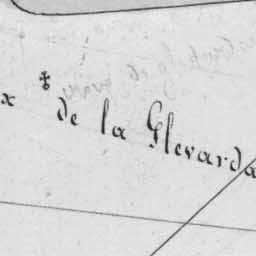 x de la Glevarda